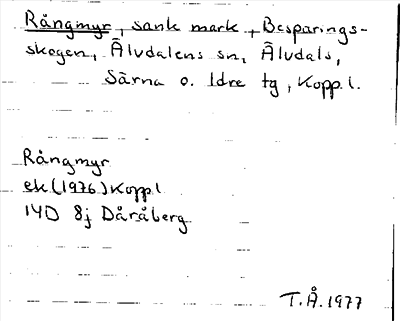 Rångmyr, sank mark, Besparings-
skogen, Älvdalens sn, Älvdals,
Särna o. Idre tg, Kopp.l.
Rångmyr
ek (1976) Kopp.l
14D 8j Dåråberg
T.Å. 1977